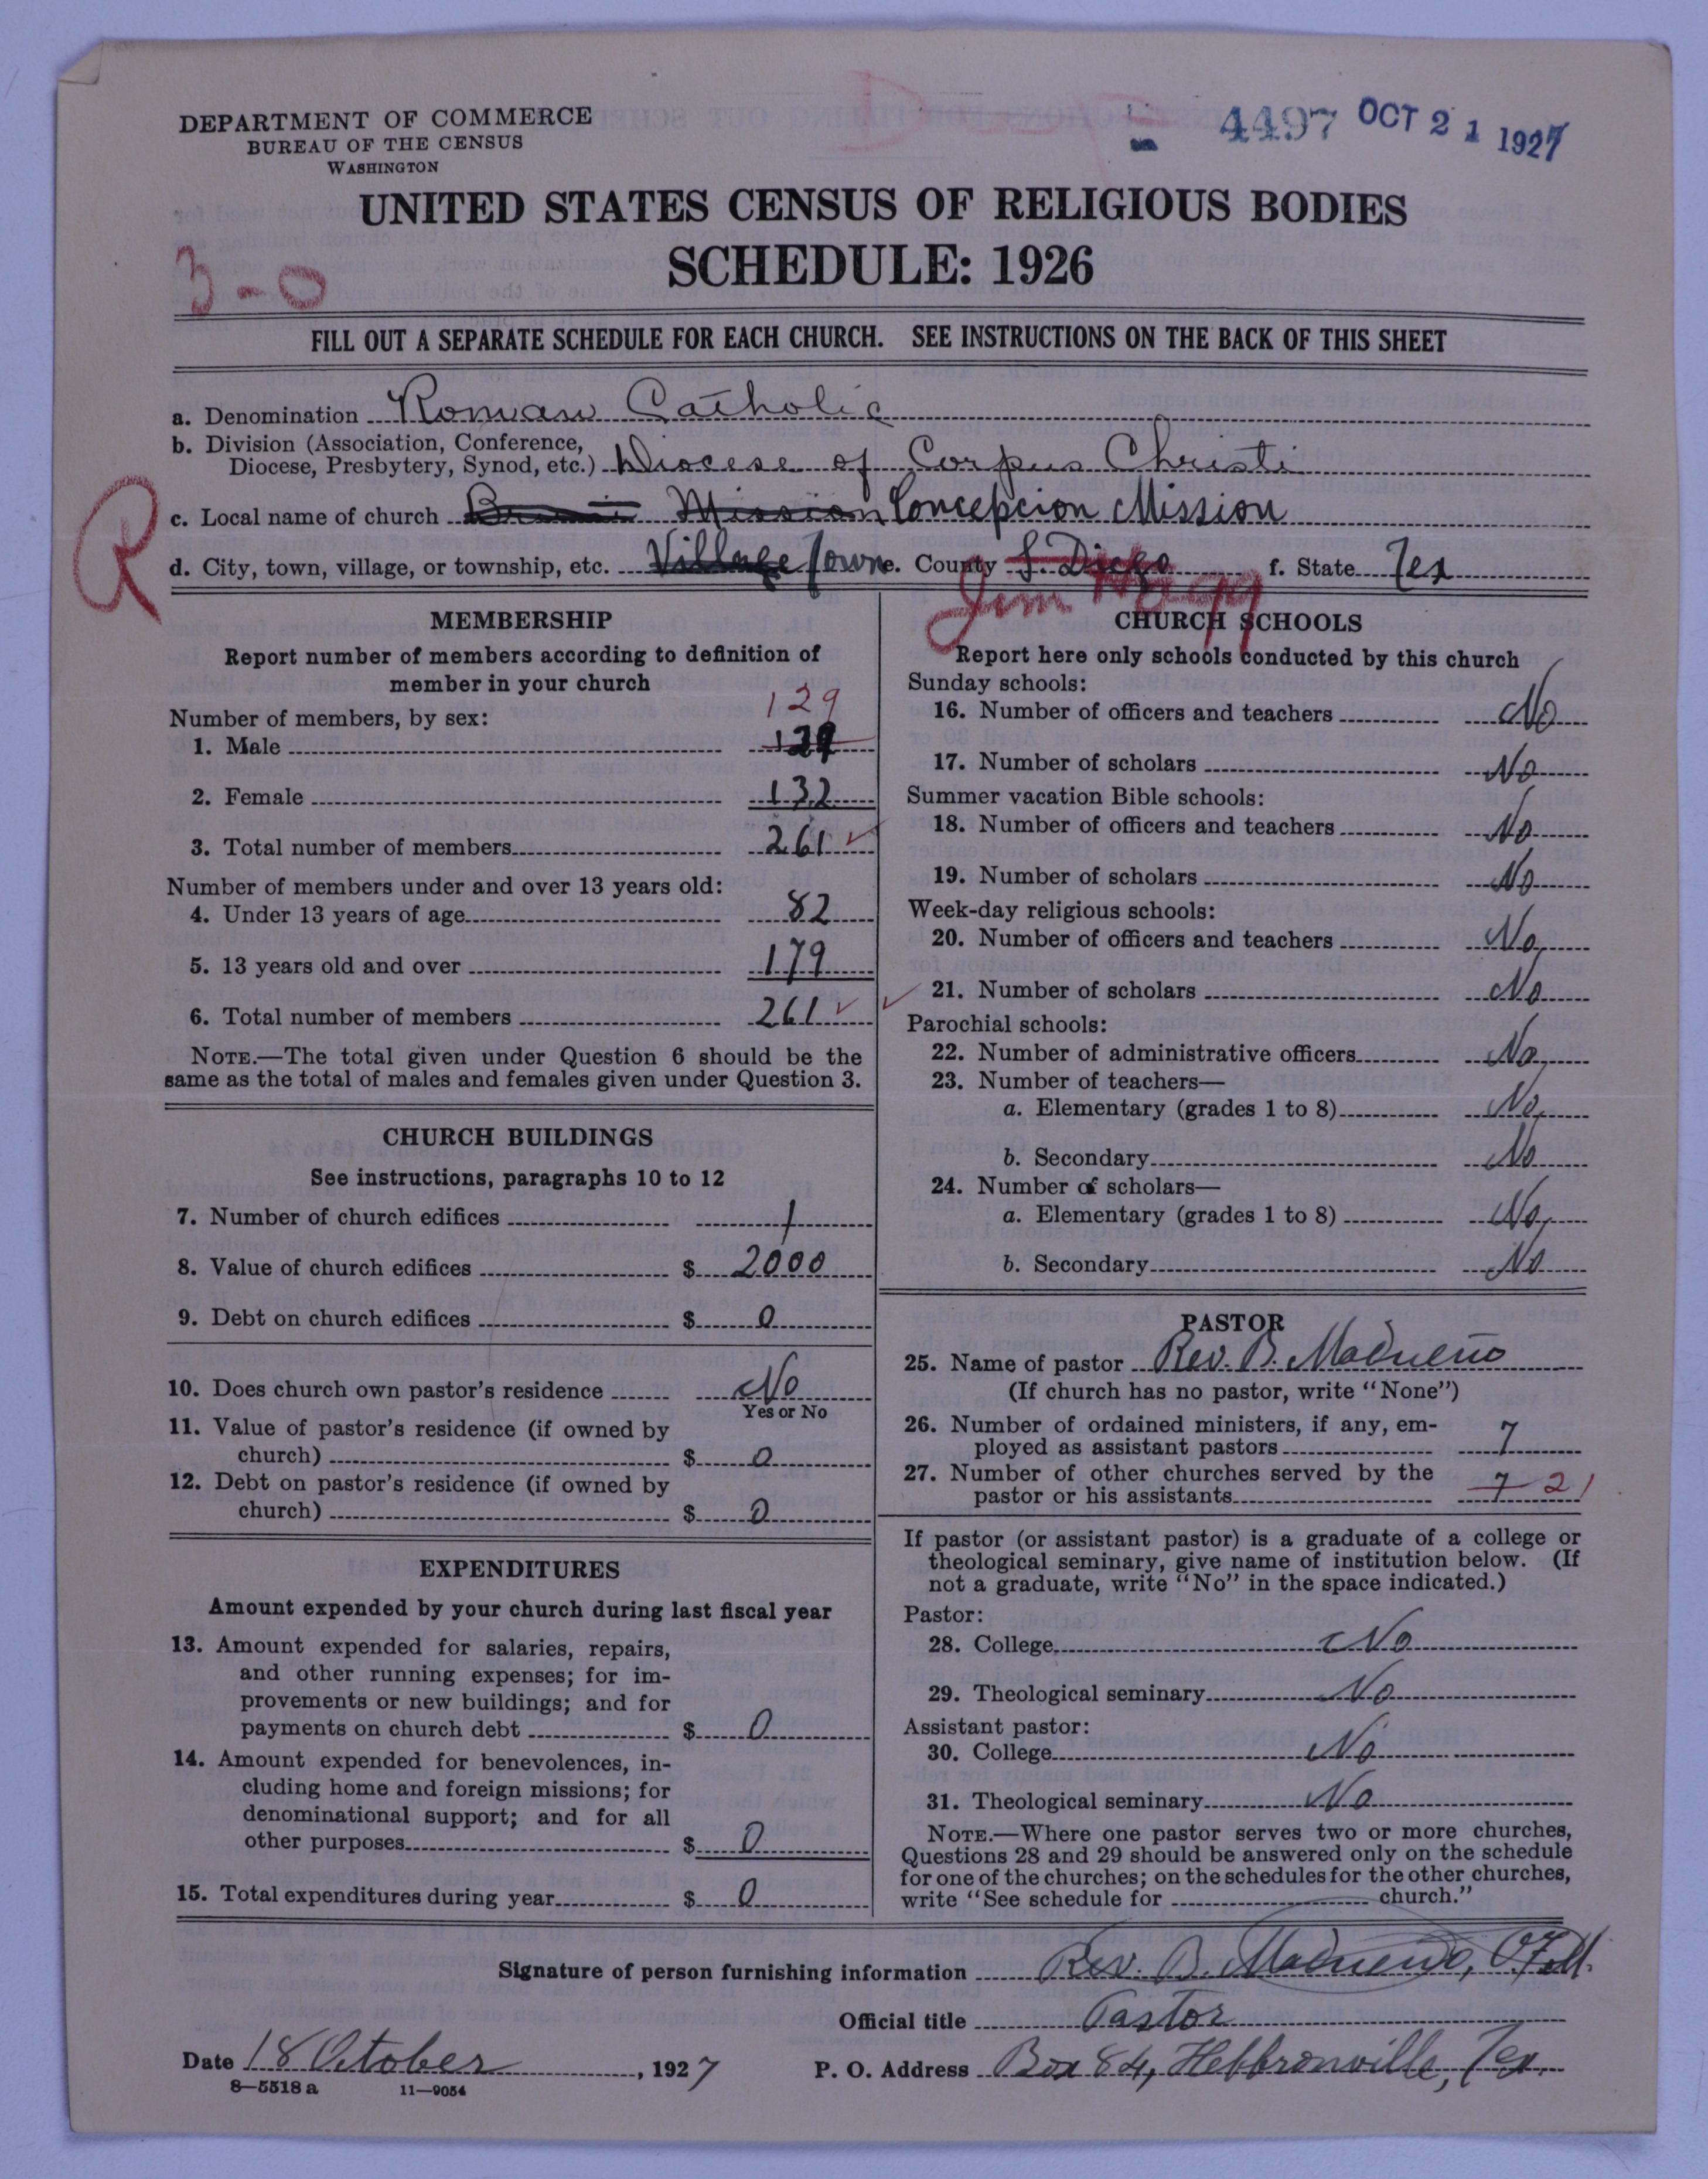 DEPARTMENT OF COMMERCE
BUREAU OF THE CENSUS
WASHINGTON
4497 OCT 21 1927
UNITED STATES CENSUS OF RELIGIOUS BODIES
SCHEDULE: 1926
3-0
FILL OUT A SEPARATE SCHEDULE FOR EACH CHURCH. SEE INSTRUCTIONS ON THE BACK OF THIS SHEET
a. Denomination Roman Catholic
b. Division (Association, Conference,
Diocese, Presbytery, Synod, etc.) Diocese of Corpus Christi
R
c. Local name of church Mission Concepcion Mission
d. City, town, village, or township, etc. Village Town e. County S. Diego f. State Tex
Jim Hogg
MEMBERSHIP
Report number of members according to definition of
member in your church
Number of members, by sex:
129
1. Male
2. Female 132
3. Total number of members 261 ✓
Number of members under and over 13 years old:
4. Under 13 years of age 82
5. 13 years old and over 179
6. Total number of members 261 ✓
NOTE.—The total given under Question 6 should be the
same as the total of males and females given under Question 3.
CHURCH BUILDINGS
See instructions, paragraphs 10 to 12
7. Number of church edifices 1
8. Value of church edifices $ 2000
9. Debt on church edifices $ 0
10. Does church own pastor's residence No
Yes or No
11. Value of pastor's residence (if owned by
church) $ 0
12. Debt on pastor's residence (if owned by
church) $ 0
EXPENDITURES
Amount expended by your church during last fiscal year
13. Amount expended for salaries, repairs,
and other running expenses; for im-
provements or new buildings; and for
payments on church debt $ 0
14. Amount expended for benevolences, in-
cluding home and foreign missions; for
denominational support; and for all
other purposes $ 0
15. Total expenditures during year $ 0
CHURCH SCHOOLS
Report here only schools conducted by this church
Sunday schools:
16. Number of officers and teachers No
17. Number of scholars No
Summer vacation Bible schools:
18. Number of officers and teachers No
19. Number of scholars No
Week-day religious schools:
20. Number of officers and teachers No
✓ 21. Number of scholars No
Parochial schools:
22. Number of administrative officers No
23. Number of teachers—
a. Elementary (grades 1 to 8) No
b. Secondary No
24. Number of scholars—
a. Elementary (grades 1 to 8) No
b. Secondary No
PASTOR
25. Name of pastor Rev. B. Madueño
(If church has no pastor, write "None")
26. Number of ordained ministers, if any, em-
ployed as assistant pastors 7
27. Number of other churches served by the
pastor or his assistants 7 21
If pastor (or assistant pastor) is a graduate of a college or
theological seminary, give name of institution below. (If
not a graduate, write "No" in the space indicated.)
Pastor:
28. College No
29. Theological seminary No
Assistant pastor:
30. College No
31. Theological seminary No
NOTE.—Where one pastor serves two or more churches,
Questions 28 and 29 should be answered only on the schedule
for one of the churches; on the schedules for the other churches,
write "See schedule for church."
Signature of person furnishing information Rev. B. Madueño, O.F.M.
Official title Pastor
Date 18 October, 1927 P. O. Address Box 84, Hebbronville, Tex.
8—5518 a 11—9054